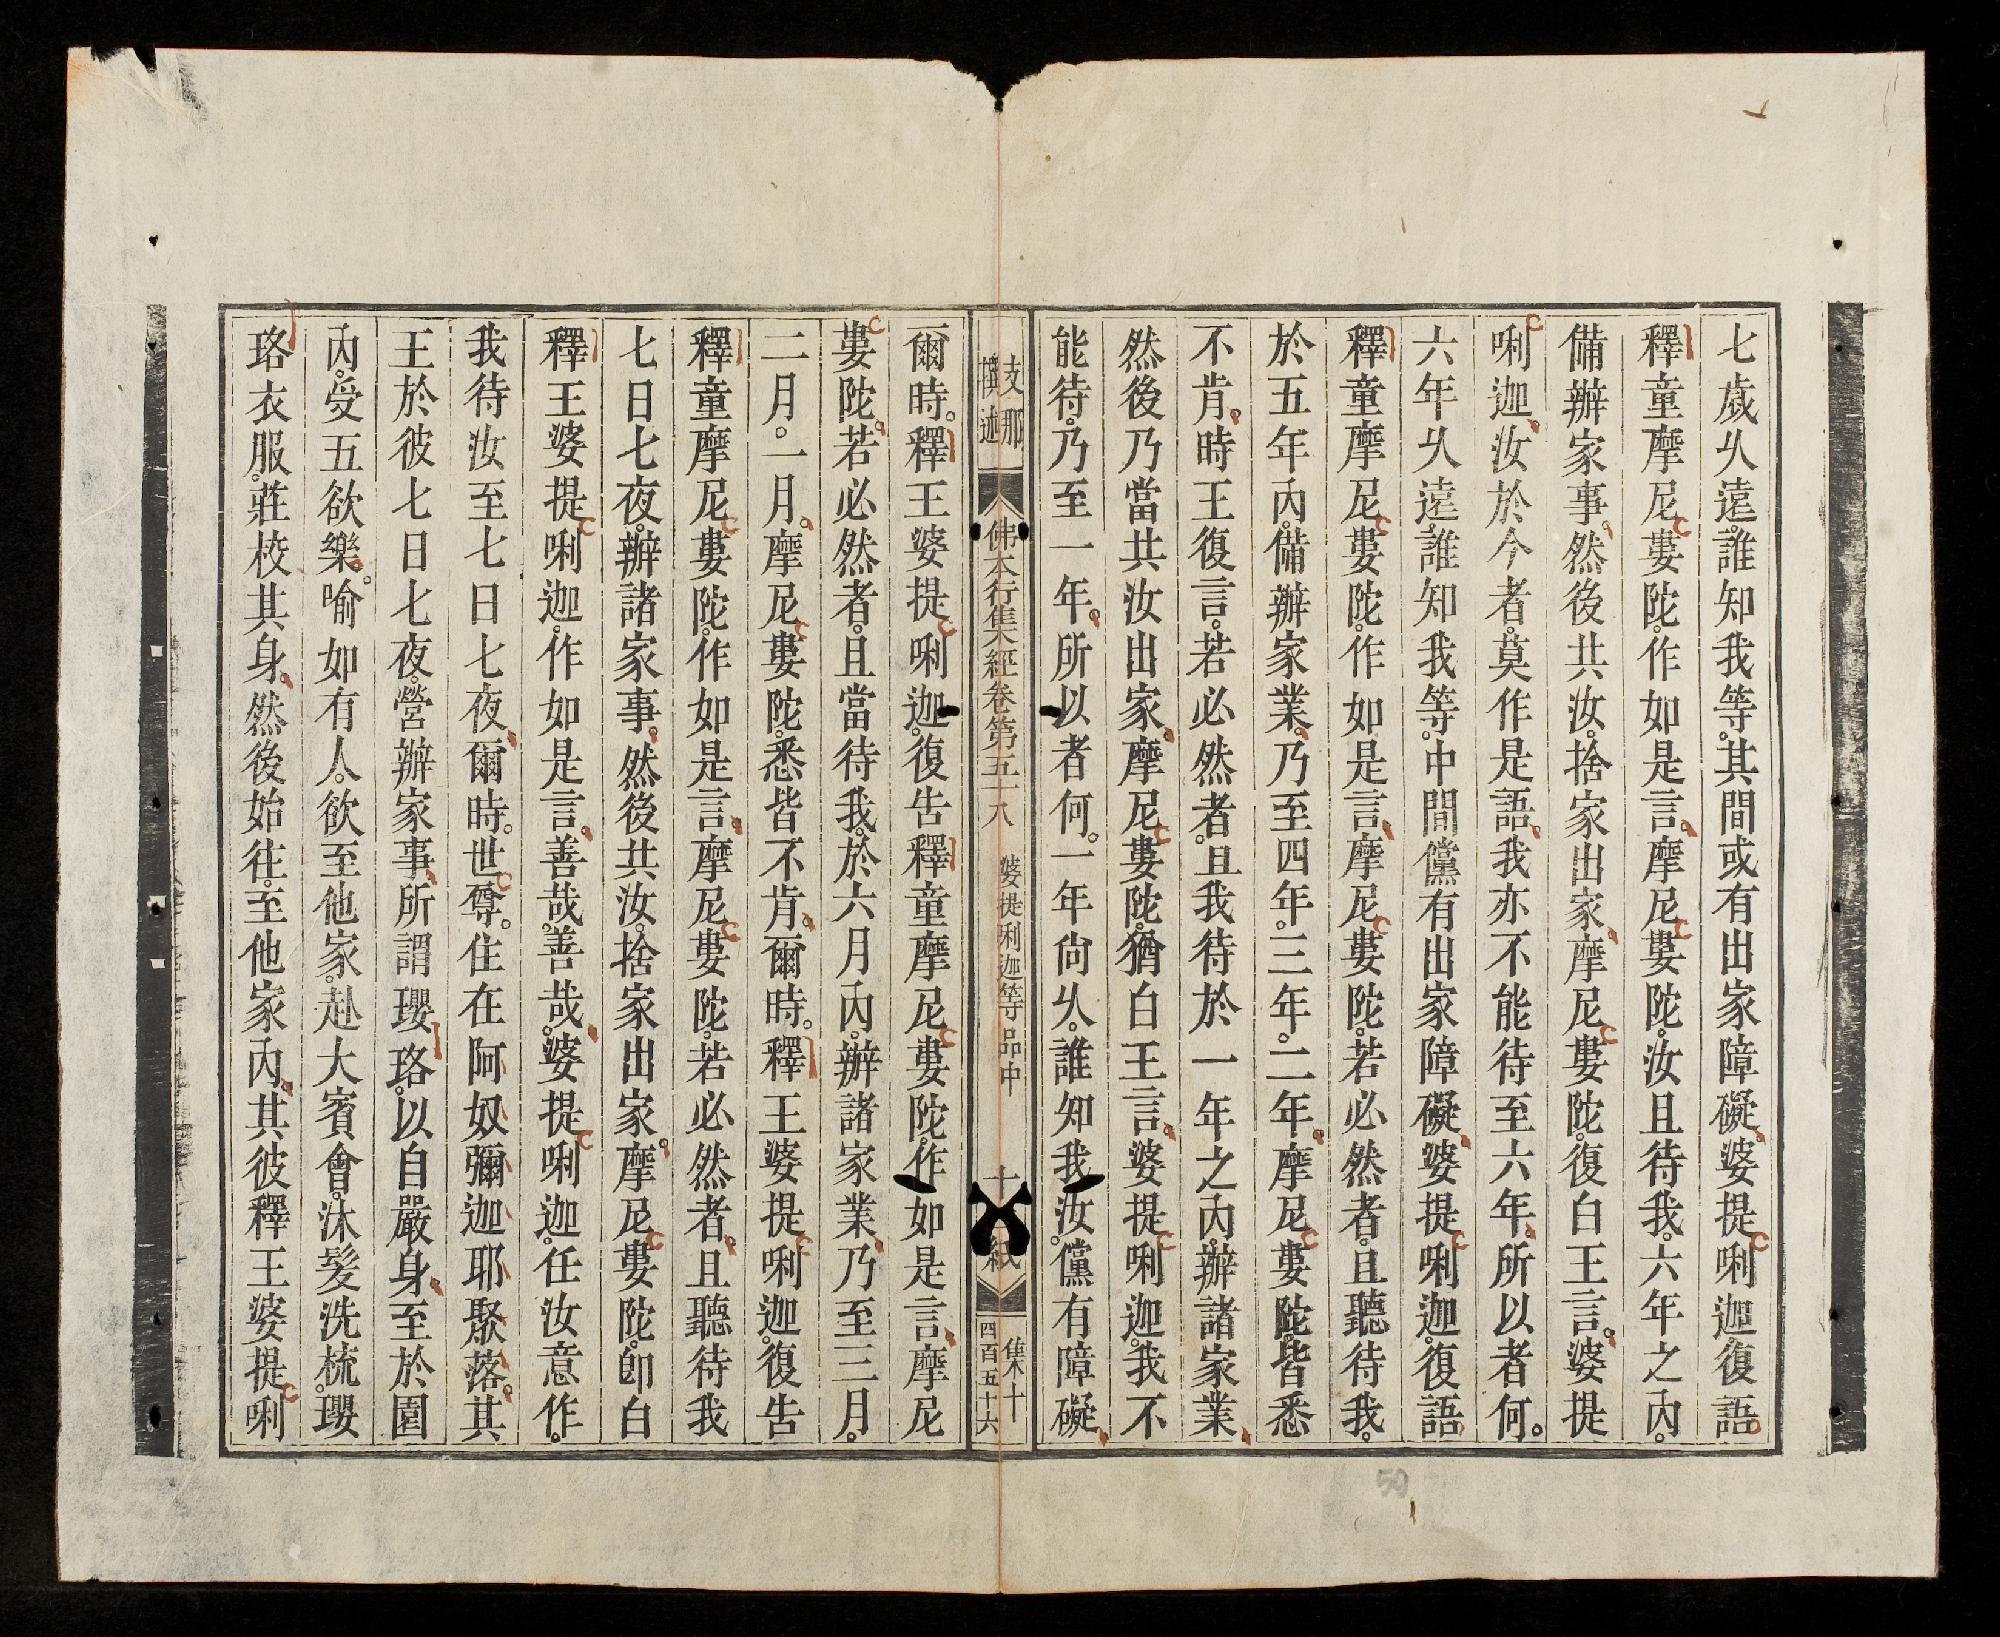 七歲乆遠。誰知我等。其間或有出家障礙。婆提唎迦。復語
釋童摩尼婁陀。作如是言。摩尼婁陀。汝且待我。六年之內。
備辦家事。然後共汝。捨家出家。摩尼婁陀。復白王言。婆提
唎迦。汝於今者。莫作是語。我亦不能待至六年。所以者何。
六年乆遠。誰知我等。中間儻有出家障礙。婆提唎迦。復語
釋童摩尼婁陀。作如是言。摩尼婁陀。若必然者。且聽待我。
於五年內。備辦家業。乃至四年。三年。二年。摩尼婁陀。皆悉
不肯。時王復言。若必然者。且我待於一年之內。辦諸家業。
然後乃當共汝出家。摩尼婁陀。猶白王言。婆提唎迦。我不
能待。乃至一年。所以者何。一年尚乆。誰知我汝。儻有障礙。
支那
撰述
佛本行集經卷第五十八 婆提利迦等品中 十 紙
集十
四百五十六
爾時。釋王婆提唎迦。復告釋童摩尼婁陀。作如是言。摩尼
婁陀。若必然者。且當待我。於六月內。辦諸家業。乃至三月。
二月。一月。摩尼婁陀。悉皆不肯。爾時。釋王婆提唎迦。復告
釋童摩尼婁陀。作如是言。摩尼婁陀。若必然者。且聽待我
七日七夜。辦諸家事。然後共汝。捨家出家。摩尼婁陀。卽白
釋王婆提唎迦。作如是言。善哉。善哉。婆提唎迦。任汝意作。
我待汝至七日七夜。爾時。世尊。住在阿奴彌迦耶聚落。其
王於彼七日七夜。營辦家事。所謂瓔珞。以自嚴身。至於園
內。受五欲樂。喻如有人。欲至他家。赴大賓會。沐髮洗梳。瓔
珞衣服。莊校其身。然後始往。至他家內。其彼釋王婆提唎
50